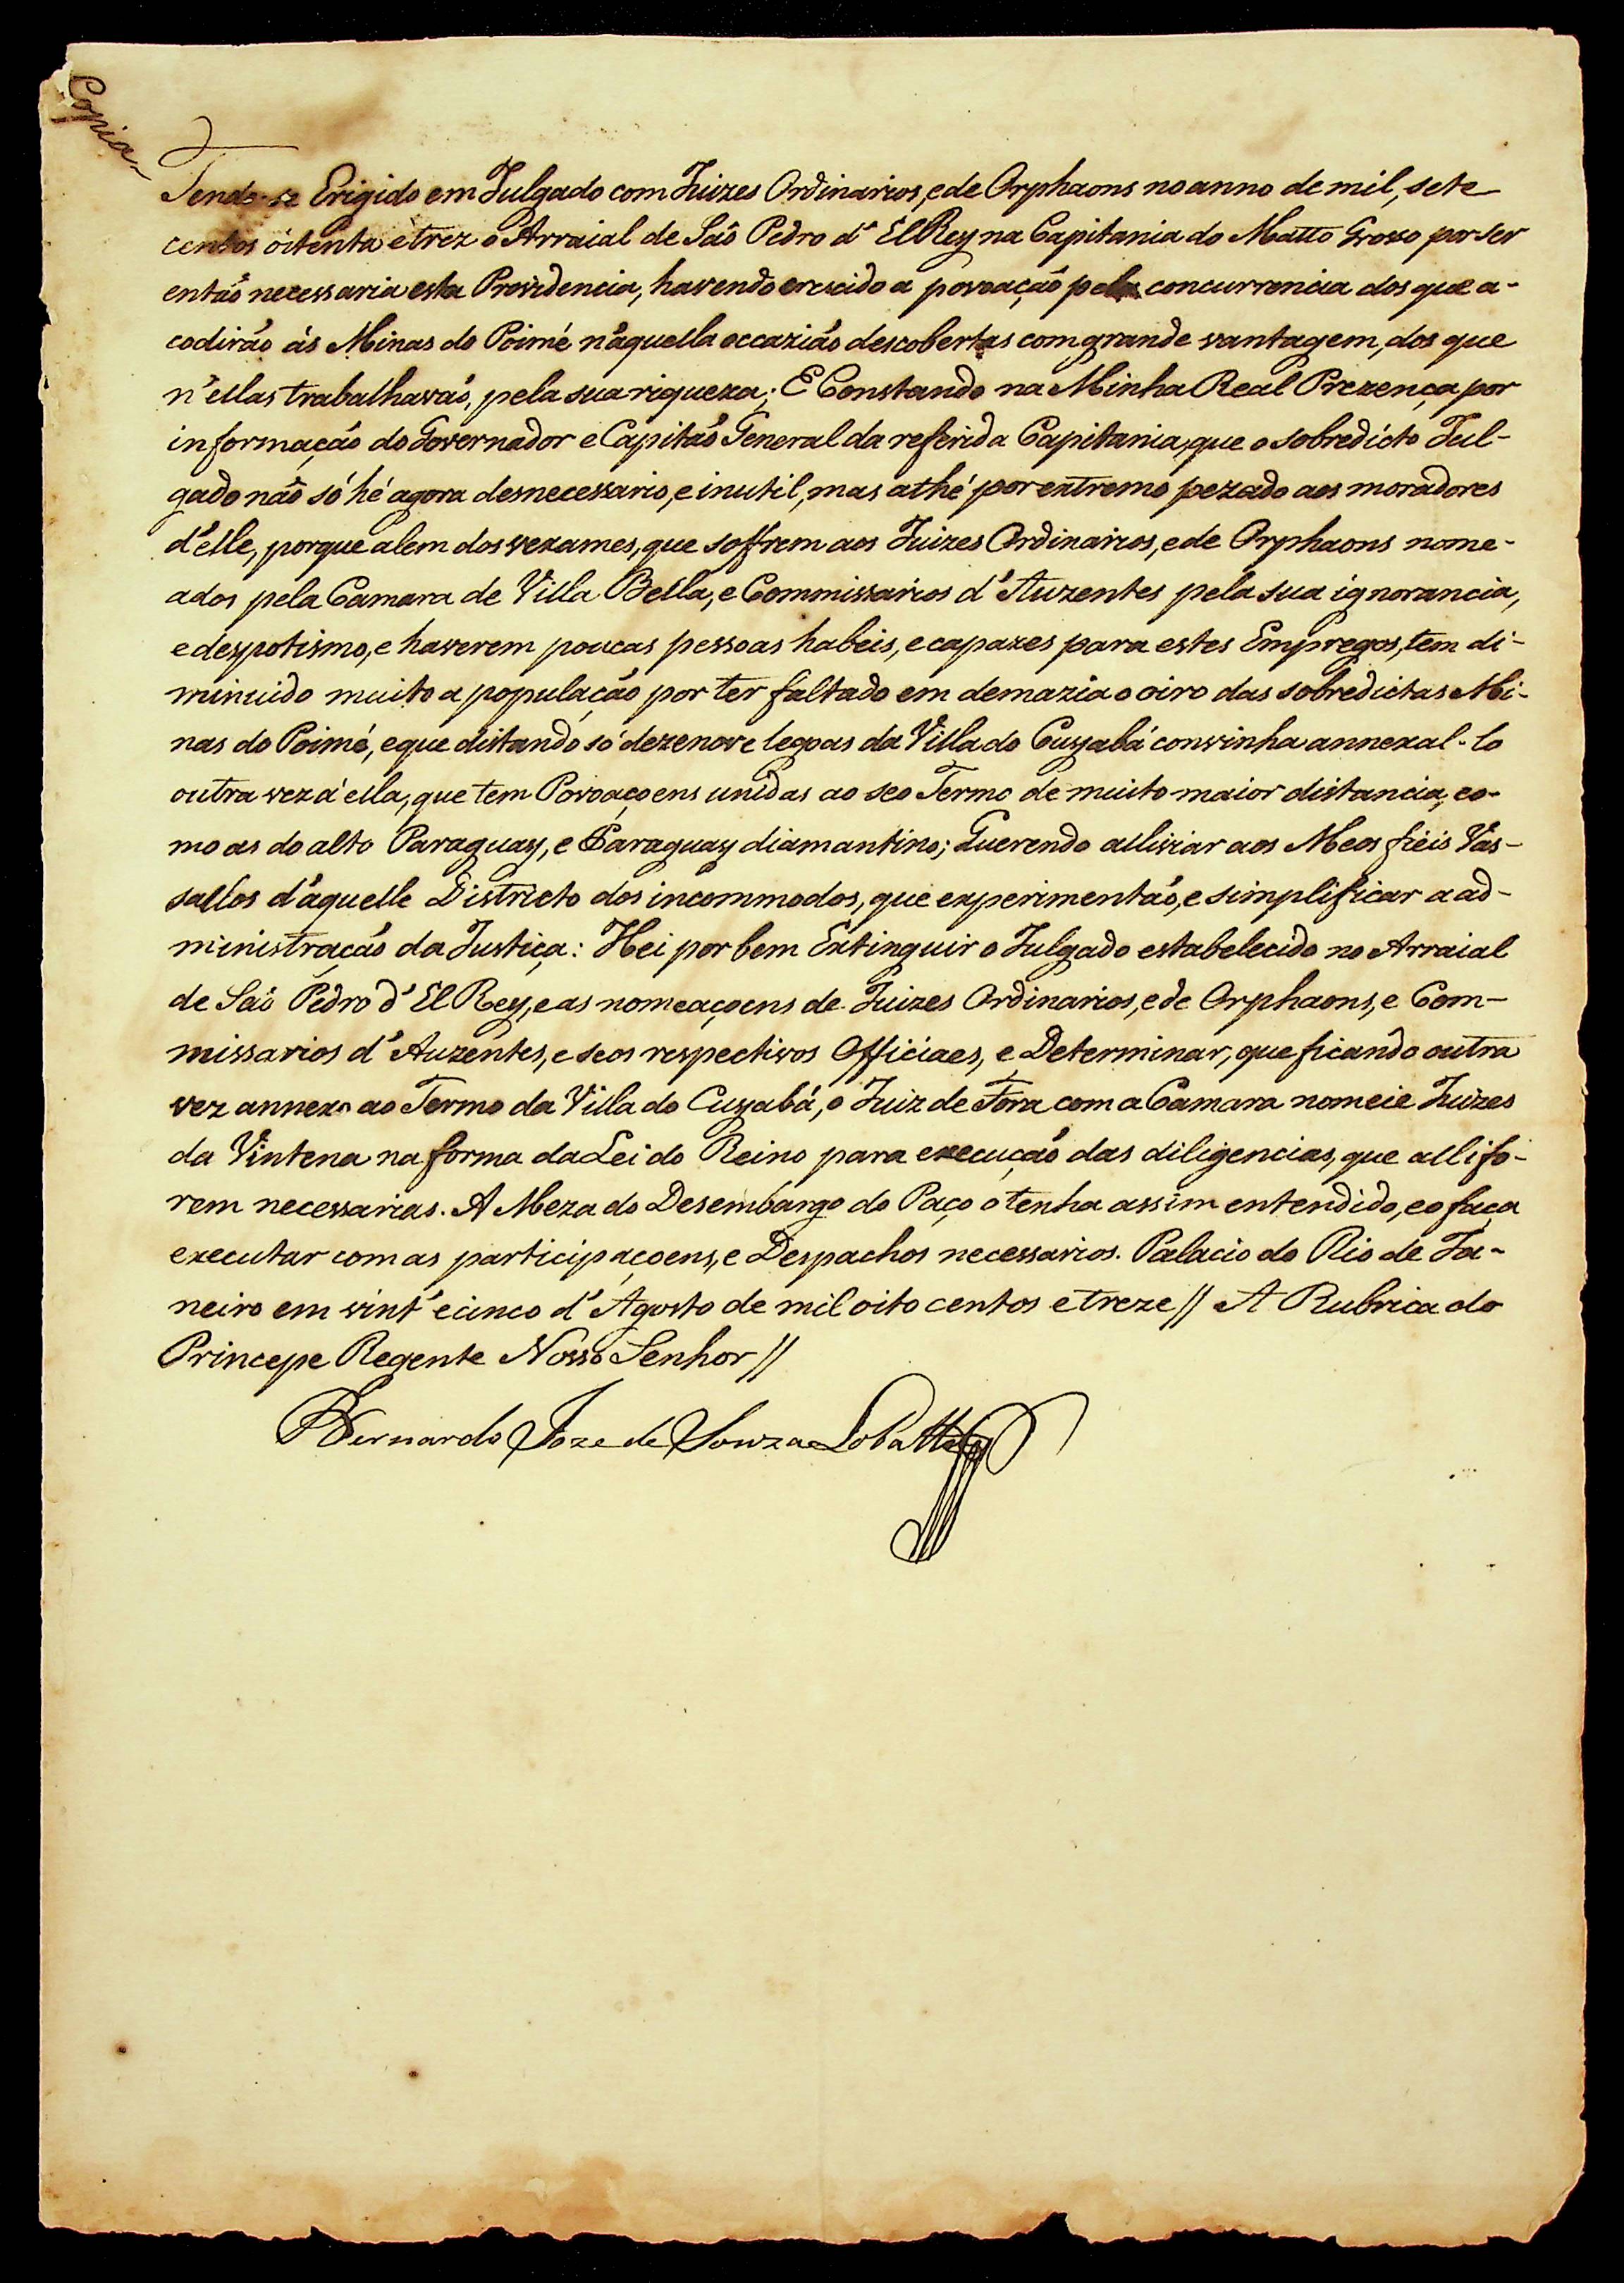 Copia
Tendo-se Erigido em Julgado com Juizes Ordinarios, e de Orphaons no anno de mil, sete
centos oitenta e trez o Arraial de Saõ Pedro d'ElRey na Capitania do Matto Grosso por ser
entaõ necessaria esta Providencia, havendo crescido a povoaçaõ pela concurrencia dos que a-
codiraõ ás Minas do Poimé n'aquella occaziaõ descobertas com grande vantagem, dos que
n'ellas trabalhavaõ, pela sua riqueza; E Constando na Minha Real Prezença por
informaçaõ do Governador e Capitaõ General da referida Capitania, que o sobredicto Jul-
gado naõ só hé agora desnecessario, e inutil, mas athé por extremo pezado aos moradores
d'elle, porque alem dos vexames, que soffrem aos Juizes Ordinarios, e de Orphaons nome-
ados pela Camara de Villa Bella, e Commissarios d'Auzentes pela sua ignorancia,
e despotismo, e haverem poucas pessoas habeis, e capazes para estes Empregos, tem di-
minuido muito a populaçaõ por ter faltado em demazia o oiro das sobredictas Mi-
nas do Poimé, e que distando só dezenove legoas da Villa do Cuyabá convinha annexal-lo
outra vez á ella, que tem Povoaçoens unidas ao seo Termo de muito maior distancia, co-
mo as do alto Paraguay, e Paraguay diamantino; Querendo alliviar aos Meos fiéis Vas-
sallos d'aquelle Districto dos incommodos, que experimentaõ, e simplificar a ad-
ministraçaõ da Justiça: Hei por bem Extinguir o Julgado estabelecido no Arraial
de Saõ Pedro d'El Rey, e as nomeaçoens de Juizes Ordinarios, e de Orphaons, e Com-
missarios d'Auzentes, e seos respectivos Officiaes, e Determinar, que ficando outra
vez annexo ao Termo da Villa do Cuyabá, o Juiz de Fora com a Camara nomeie Juizes
da Vintena na forma da Lei do Reino para execuçaõ das diligencias, que alli fo-
rem necessarias. A Meza do Desembargo do Paço o tenha assim entendido, e o faça
executar com as participaçoens, e Despachos necessarios. Palacio do Rio de Ja-
neiro em vint'e cinco d'Agosto de mil oito centos e treze // A Rubrica do
Princepe Regente Nosso Senhor //
Bernardo Joze de Souza Lobatto